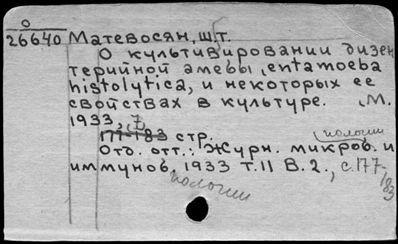 О
26640 Матевосян, Ш.Т.
О культивировании дизен
терийной амебы, entamoeba
histolytica, и некоторых ее
свойствах в культуре. М.
1933, 7
177-183 стр.
пологии
Отд. отт.: Журн. микроб. и
иммунов, 1933 т.11 В.2., с.177-
183
пологии